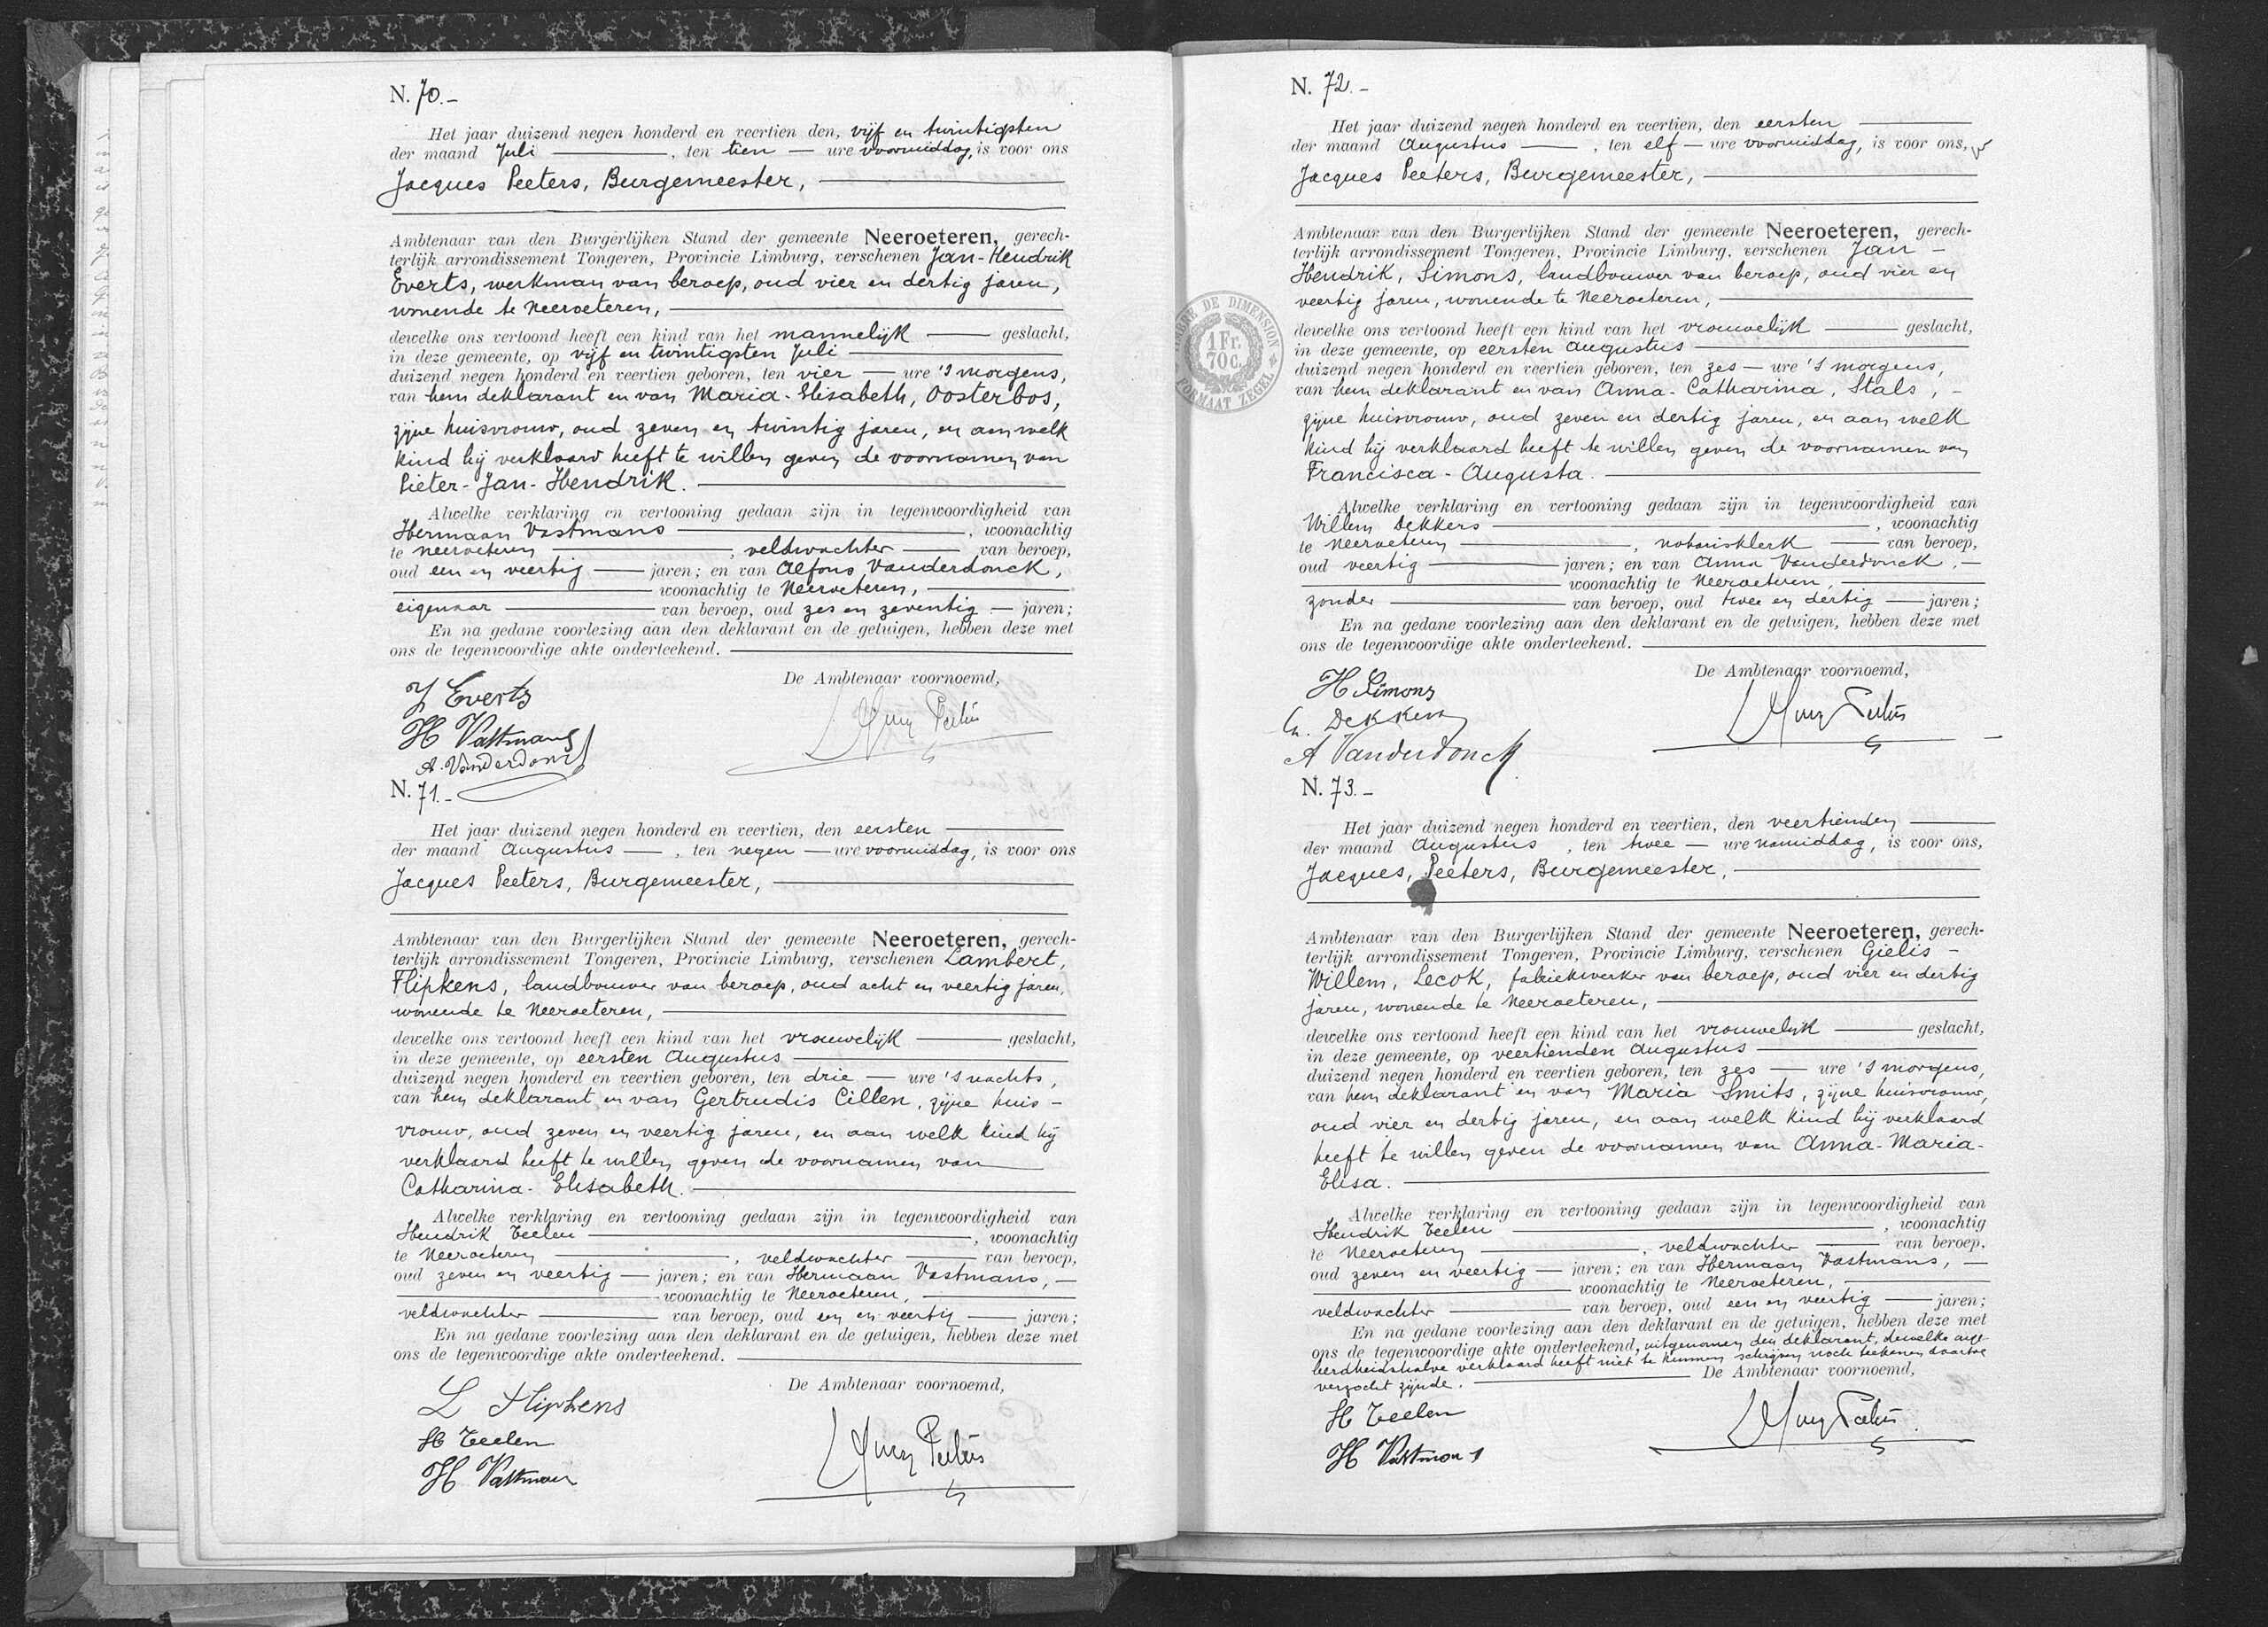 N. 70.-
Het jaar duizend negen honderd en veertien den, vijf en twintigsten
der maand Juli, ten tien ure voormiddag, is voor ons
Jacques Peeters, Burgemeester,
Ambtenaar van den Burgerlijken Stand der gemeente Neeroeteren, gerech-
terlijk arrondissement Tongeren, Provincie Limburg, verschenen Jan-Hendrik
Everts, werkman van beroep, oud vier en dertig jaren,
wonende te Neeroeteren,
dewelke ons vertoond heeft een kind van het mannelijk geslacht,
in deze gemeente, op vijf en twintigsten Juli
duizend negen honderd en veertien geboren, ten vier ure 's morgens,
van hem deklarant en van Maria-Elisabeth, Oosterbos,
zijne huisvrouw, oud zeven en twintig jaren, en aan welk
kind hij verklaard heeft te willen geven de voornamen van
Pieter-Jan-Hendrik.
Alwelke verklaring en vertooning gedaan zijn in tegenwoordigheid van
Hermaan Vostmans, woonachtig
te Neeroeteren, veldwachter van beroep,
oud een en veertig jaren; en van Alfons Vanderdonck,
woonachtig te Neeroeteren,
eigenaar van beroep, oud zes en zeventig jaren;
En na gedane voorlezing aan den deklarant en de getuigen, hebben deze met
ons de tegenwoordige akte onderteekend.
De Ambtenaar voornoemd,
J Everts
H Vastmans
A. Vanderdonck
N. 71.-
Het jaar duizend negen honderd en veertien, den eersten
der maand Augustus, ten negen ure voormiddag, is voor ons
Jacques Peeters, Burgemeester,
Ambtenaar van den Burgerlijken Stand der gemeente Neeroeteren, gerech-
terlijk arrondissement Tongeren, Provincie Limburg, verschenen Lambert,
Flipkens, landbouwer van beroep, oud acht en veertig jaren,
wonende te Neeroeteren,
dewelke ons vertoond heeft een kind van het vrouwelijk geslacht,
in deze gemeente, op eersten Augustus
duizend negen honderd en veertien geboren, ten drie ure 's nachts,
van hem deklarant en van Gertrudis Cillen, zijne huis-
vrouw, oud zeven en veertig jaren, en aan welk kind hij
verklaard heeft te willen geven de voornamen van
Catharina-Elisabeth.
Alwelke verklaring en vertooning gedaan zijn in tegenwoordigheid van
Hendrik Teelen, woonachtig
te Neeroeteren, veldwachter van beroep,
oud zeven en veertig jaren; en van Hermaan Vostmans,
woonachtig te Neeroeteren,
veldwachter van beroep, oud een en veertig jaren;
En na gedane voorlezing aan den deklarant en de getuigen, hebben deze met
ons de tegenwoordige akte onderteekend.
De Ambtenaar voornoemd,
L Flipkens
H Teelen
H Vastmans
N. 72.-
Het jaar duizend negen honderd en veertien, den eersten
der maand Augustus, ten elf ure voormiddag, is voor ons,
Jacques Peeters, Burgemeester,
Ambtenaar van den Burgerlijken Stand der gemeente Neeroeteren, gerech-
terlijk arrondissement Tongeren, Provincie Limburg, verschenen Jan-
Hendrik, Simons, landbouwer van beroep, oud vier en
veertig jaren, wonende te Neeroeteren,
dewelke ons vertoond heeft een kind van het vrouwelijk geslacht,
in deze gemeente, op eersten Augustus
duizend negen honderd en veertien geboren, ten zes ure 's morgens,
van hem deklarant en van Anna-Catharina, Stals,
zijne huisvrouw, oud zeven en dertig jaren, en aan welk
kind hij verklaard heeft te willen geven de voornamen van
Francisca-Augusta.
Alwelke verklaring en vertooning gedaan zijn in tegenwoordigheid van
Willem Dekkers, woonachtig
te Neeroeteren, notarisklerk van beroep,
oud veertig jaren; en van Anna Vanderdonck,
woonachtig te Neeroeteren,
zonder van beroep, oud twee en dertig jaren;
En na gedane voorlezing aan den deklarant en de getuigen, hebben deze met
ons de tegenwoordige akte onderteekend.
De Ambtenaar voornoemd,
H Simons
Dekkers
A Vanderdonck
DE DIMENSION
1 Fr.
70 c.
FORMAAT ZEGEL
N. 73.-
Het jaar duizend negen honderd en veertien, den veertienden
der maand Augustus, ten twee ure namiddag, is voor ons,
Jacques, Peeters, Burgemeester,
Ambtenaar van den Burgerlijken Stand der gemeente Neeroeteren, gerech-
terlijk arrondissement Tongeren, Provincie Limburg, verschenen Gielis-
Willem, Lecok, fabriekwerker van beroep, oud vier en dertig
jaren, wonende te Neeroeteren,
dewelke ons vertoond heeft een kind van het vrouwelijk geslacht,
in deze gemeente, op veertienden Augustus
duizend negen honderd en veertien geboren, ten zes ure 's morgens,
van hem deklarant en van Maria Smits, zijne huisvrouw,
oud vier en dertig jaren, en aan welk kind hij verklaard
heeft te willen geven de voornamen van Anna-Maria-
Elisa.
Alwelke verklaring en vertooning gedaan zijn in tegenwoordigheid van
Hendrik Teelen, woonachtig
te Neeroeteren, veldwachter van beroep,
oud zeven en veertig jaren; en van Hermaan Vostmans,
woonachtig te Neeroeteren,
veldwachter van beroep, oud een en veertig jaren;
En na gedane voorlezing aan den deklarant en de getuigen, hebben deze met
ons de tegenwoordige akte onderteekend, uitgenomen den deklarant, dewelke onge-
leerdheidshalve verklaard heeft niet te kunnen schrijven noch teekenen daartoe
verzocht zijnde.
De Ambtenaar voornoemd,
H Teelen
H Vastmans